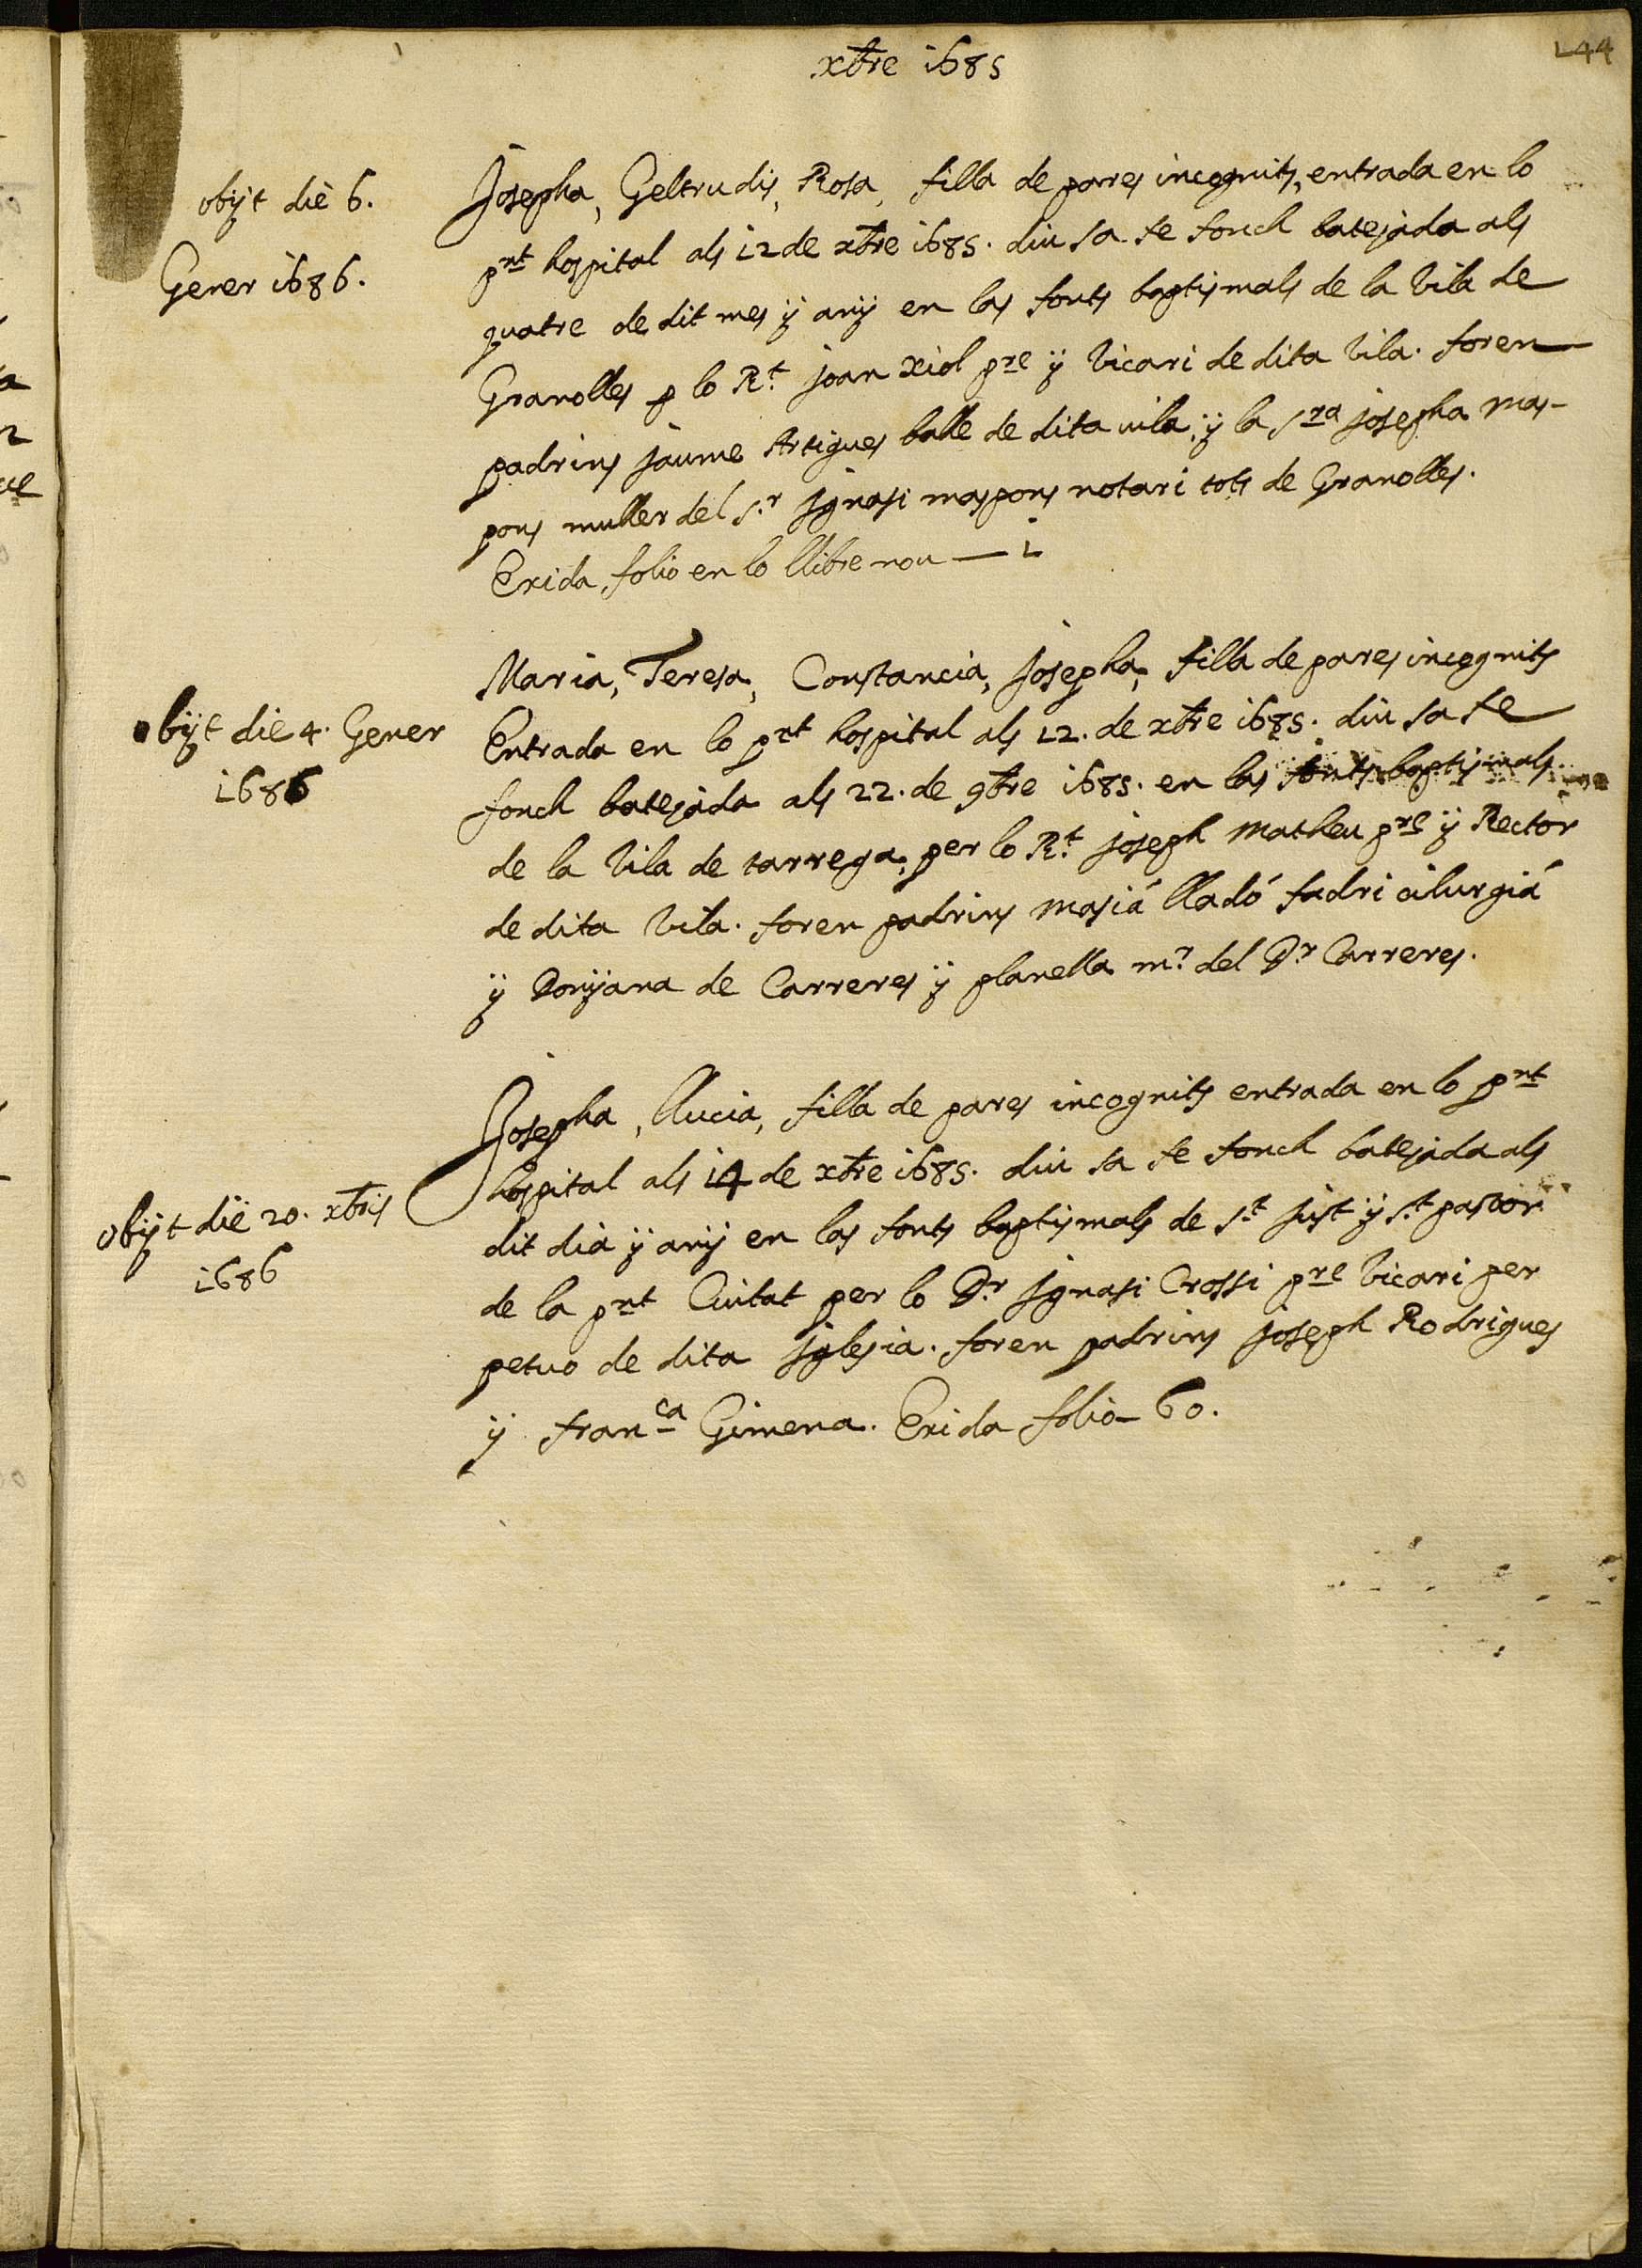 xbre 1685
144
obijt die 6.
Gener 1686.
Josepha, Geltrudis, Rosa, filla de pares incognits, entrada en lo
pnt hospital als 12 de xbre 1685. diu sa fe fonch batejada als
quatre de dit mes ÿ anÿ en las fonts baptismals de la vila de
Granolles p lo Rt. joan xiol pre ÿ vicari de dita vila. foren
padrins jaume Artigues balle de dita uila ÿ la sra josepha mas-
pons muller del s.r Jgnasi maspons notari tots de Granolles.
Exida, folio en lo llibre nou — 1
obijt die 4. Gener
1686
Maria, Teresa, Constancia, Josepha, filla de pares incognits
Entrada en lo pnt hospital als 12. de xbre 1685. diu sa fe
fonch batejada als 22. de 9bre 1685. en las fonts baptismals
de la vila de tarrega, per lo Rt. joseph matheu pre ÿ Rector
de dita vila. foren padrins masiá lladó fadri cilurgiá
ÿ Donÿana de Carreres ÿ planella m.r del Dr. Carreres.
obijt die 20. xbris
1686
Josepha, llucia, filla de pares incognits entrada en lo pnt
hospital als 14 de xbre 1685. diu sa fe fonch batejada als
dit dia ÿ anÿ en las fonts baptismals de st just ÿ s.t pastor
de la pnt Ciutat per lo Dr. Jgnasi Crossi pre vicari per
petuo de dita Jglesia. foren padrins joseph Rodrigues
ÿ franca Gimena. Exida folio - 60.